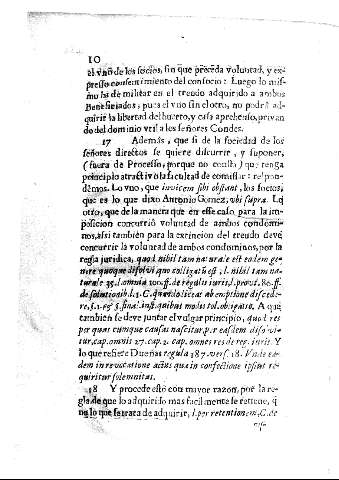 10
el vno de los socios, sin que preceda voluntad, y ex-
presso consentimiento del consocio: Luego lo mis-
mo ha de militar en el treudo adquirido a ambos
Beneficiados; pues el vno sin el otro, no podrá ad-
quirir la libertad del huerto, y casa aprehenso, privan
do del dominio vtil a los señores Condes.
17 Además, que si de la sociedad de los
señores directos se quiere discurrir, y suponer,
(fuera de Processo, porque no consta) que tenga
principio atractivo la facultad de comissar: respon-
dèmos. Lo vno, que invicem sibi obstant, los socios,
que es lo que dixo Antonio Gomez, vbi supra. Lo
otro, que de la manera que en este caso, para la im-
posicion concurriò voluntad de ambos condomi-
nos, assi tambien para la extincion del treudo deve
concurrir la voluntad de ambos condominos, por la
regla juridica, quod nihil tam naturale est eodem ge-
nere quoque dissolvi quo colligatũ est, l. nihil tam na-
turale 35. l. omnia 100. ff. de regulis iuris, l. prout. 80. ff.
de solutionib. l. 1. C. quando liceat ab emptione discede-
re, §. 1. 29. §. final. inst. quibus modis tol. obligatio. A que
tambien se deve juntar el vulgar principio, quod res
per quas cumque causas nascitur, per easdem dissolvi-
tur, cap. omnis 27. cap. 2. omnes res de reg. iuris. Y
lo que refiere Dueñas regula 187. vers. 18. Vnde ea-
dem in revocatione actus qua in confectione ipsius re-
quiritur solemnitas.
18 Y procede esto con mayor razon, por la re-
gla de que lo adquirido mas facilmente se retiene, q̃
no lo que se trata de adquirir, l. per retentionem, C. de